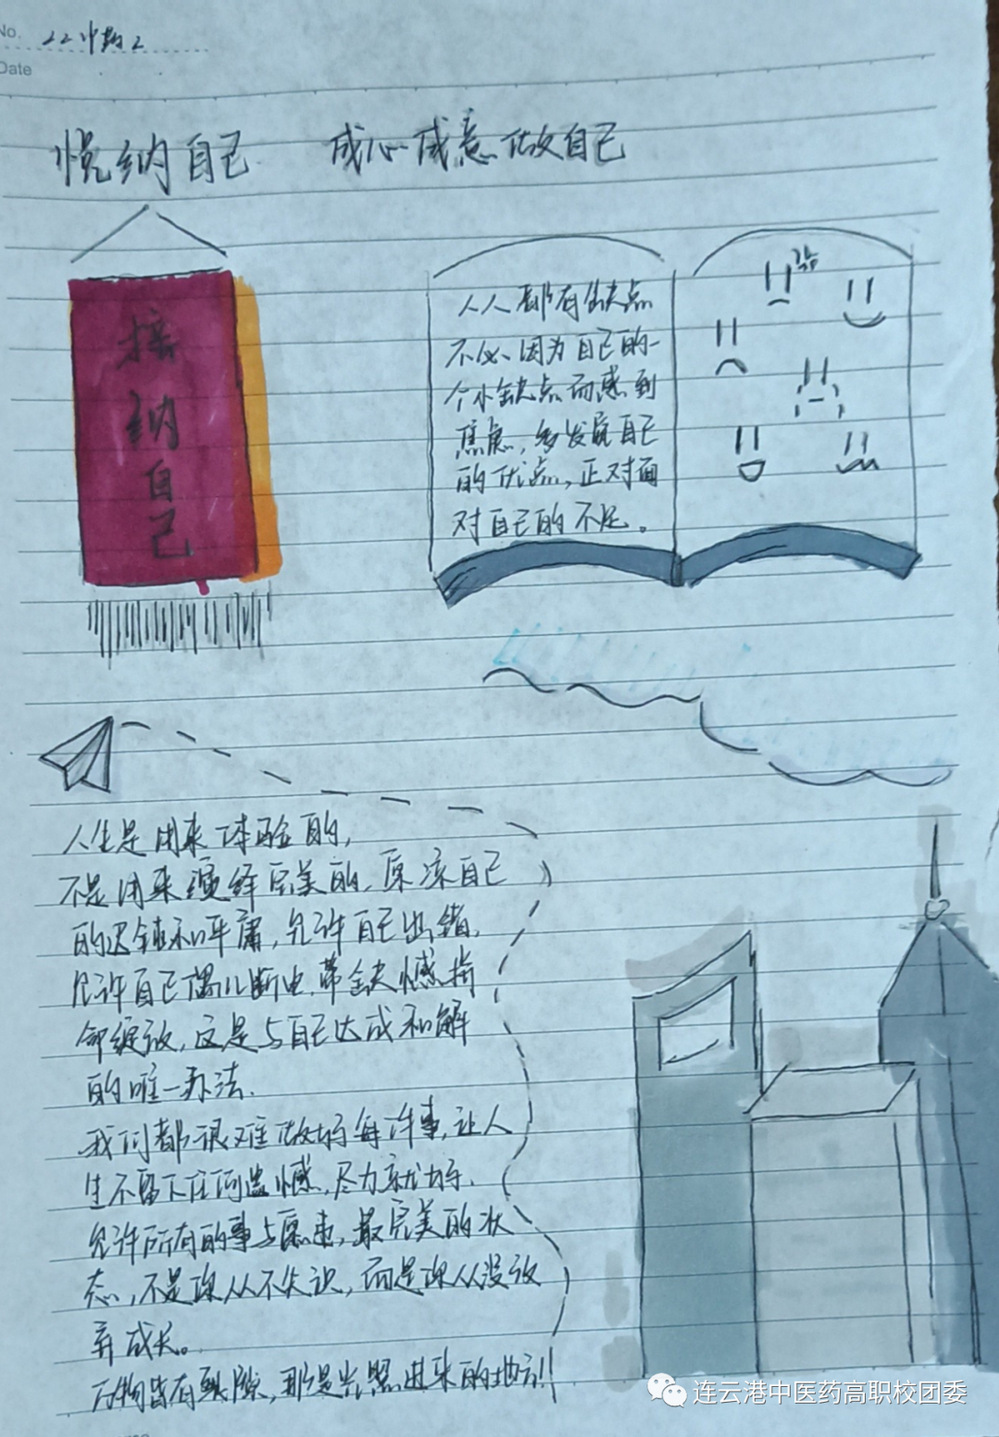 No. 22中药2
Date
悦纳自己 成心成意做自己
接纳自己
人人都有缺点
不必因为自己的一
个小缺点而感到
焦虑,多发展自己
的优点,正对面
对自己的不足。
人生是用来体验的,
不是用来演绎完美的,原凉自己
的迟钝和平庸,允许自己出错,
允许自己偶儿断电,带缺憾拚
命绽放,这是与自己达成和解
的唯一办法.
我们都很难做好每件事,让人
生不留下任何遗憾,尽力就好.
允许所有的事与愿违,最完美的状
态,不是你从不失误,而是你从没放
弃成长。
万物皆有裂隙,那是光照进来的地方!!
连云港中医药高职校团委